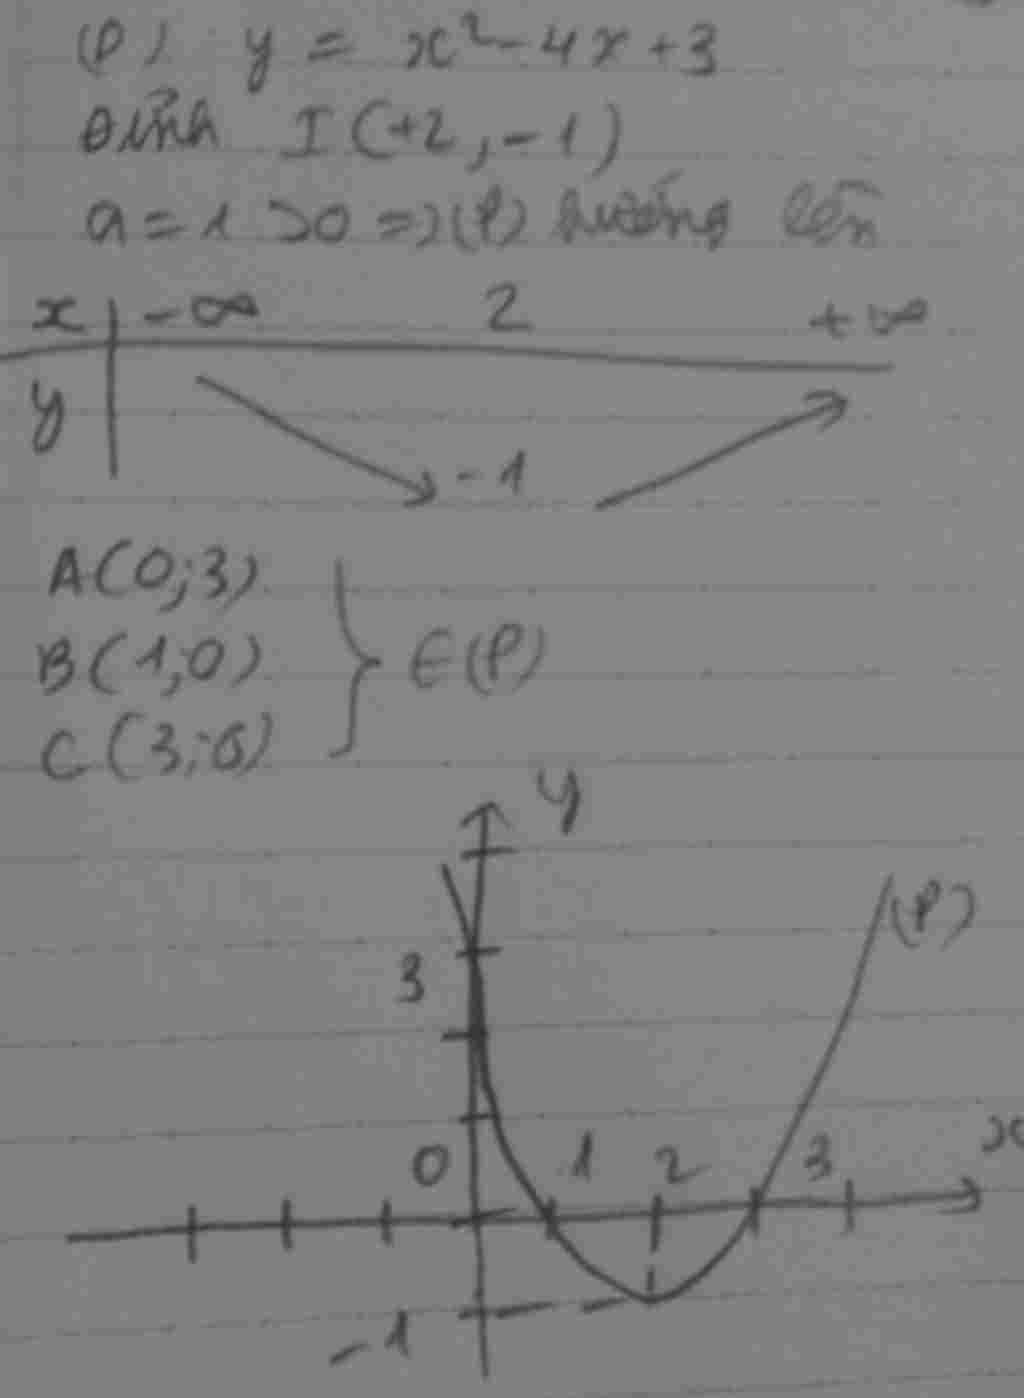 (P) y = x² - 4x + 3
Đỉnh I(+2, -1)
a = 1 > 0 => (P) hướng lên
x -∞ 2 +∞
y -1
A(0;3)
B(1;0) } ∈(P)
C(3;0)
y
(P)
3
0 1 2 3 x
-1